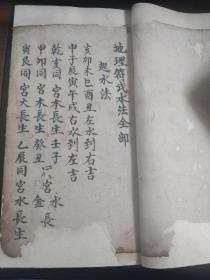 地理符式水法全部
起水法
亥卯未巳酉丑左水到右吉
申子辰寅午戌右水到左吉
乾亥同宮木長生壬子
水長
甲卯同宮木長生癸丑
金
寅艮同宮火長生乙辰同宮水長生